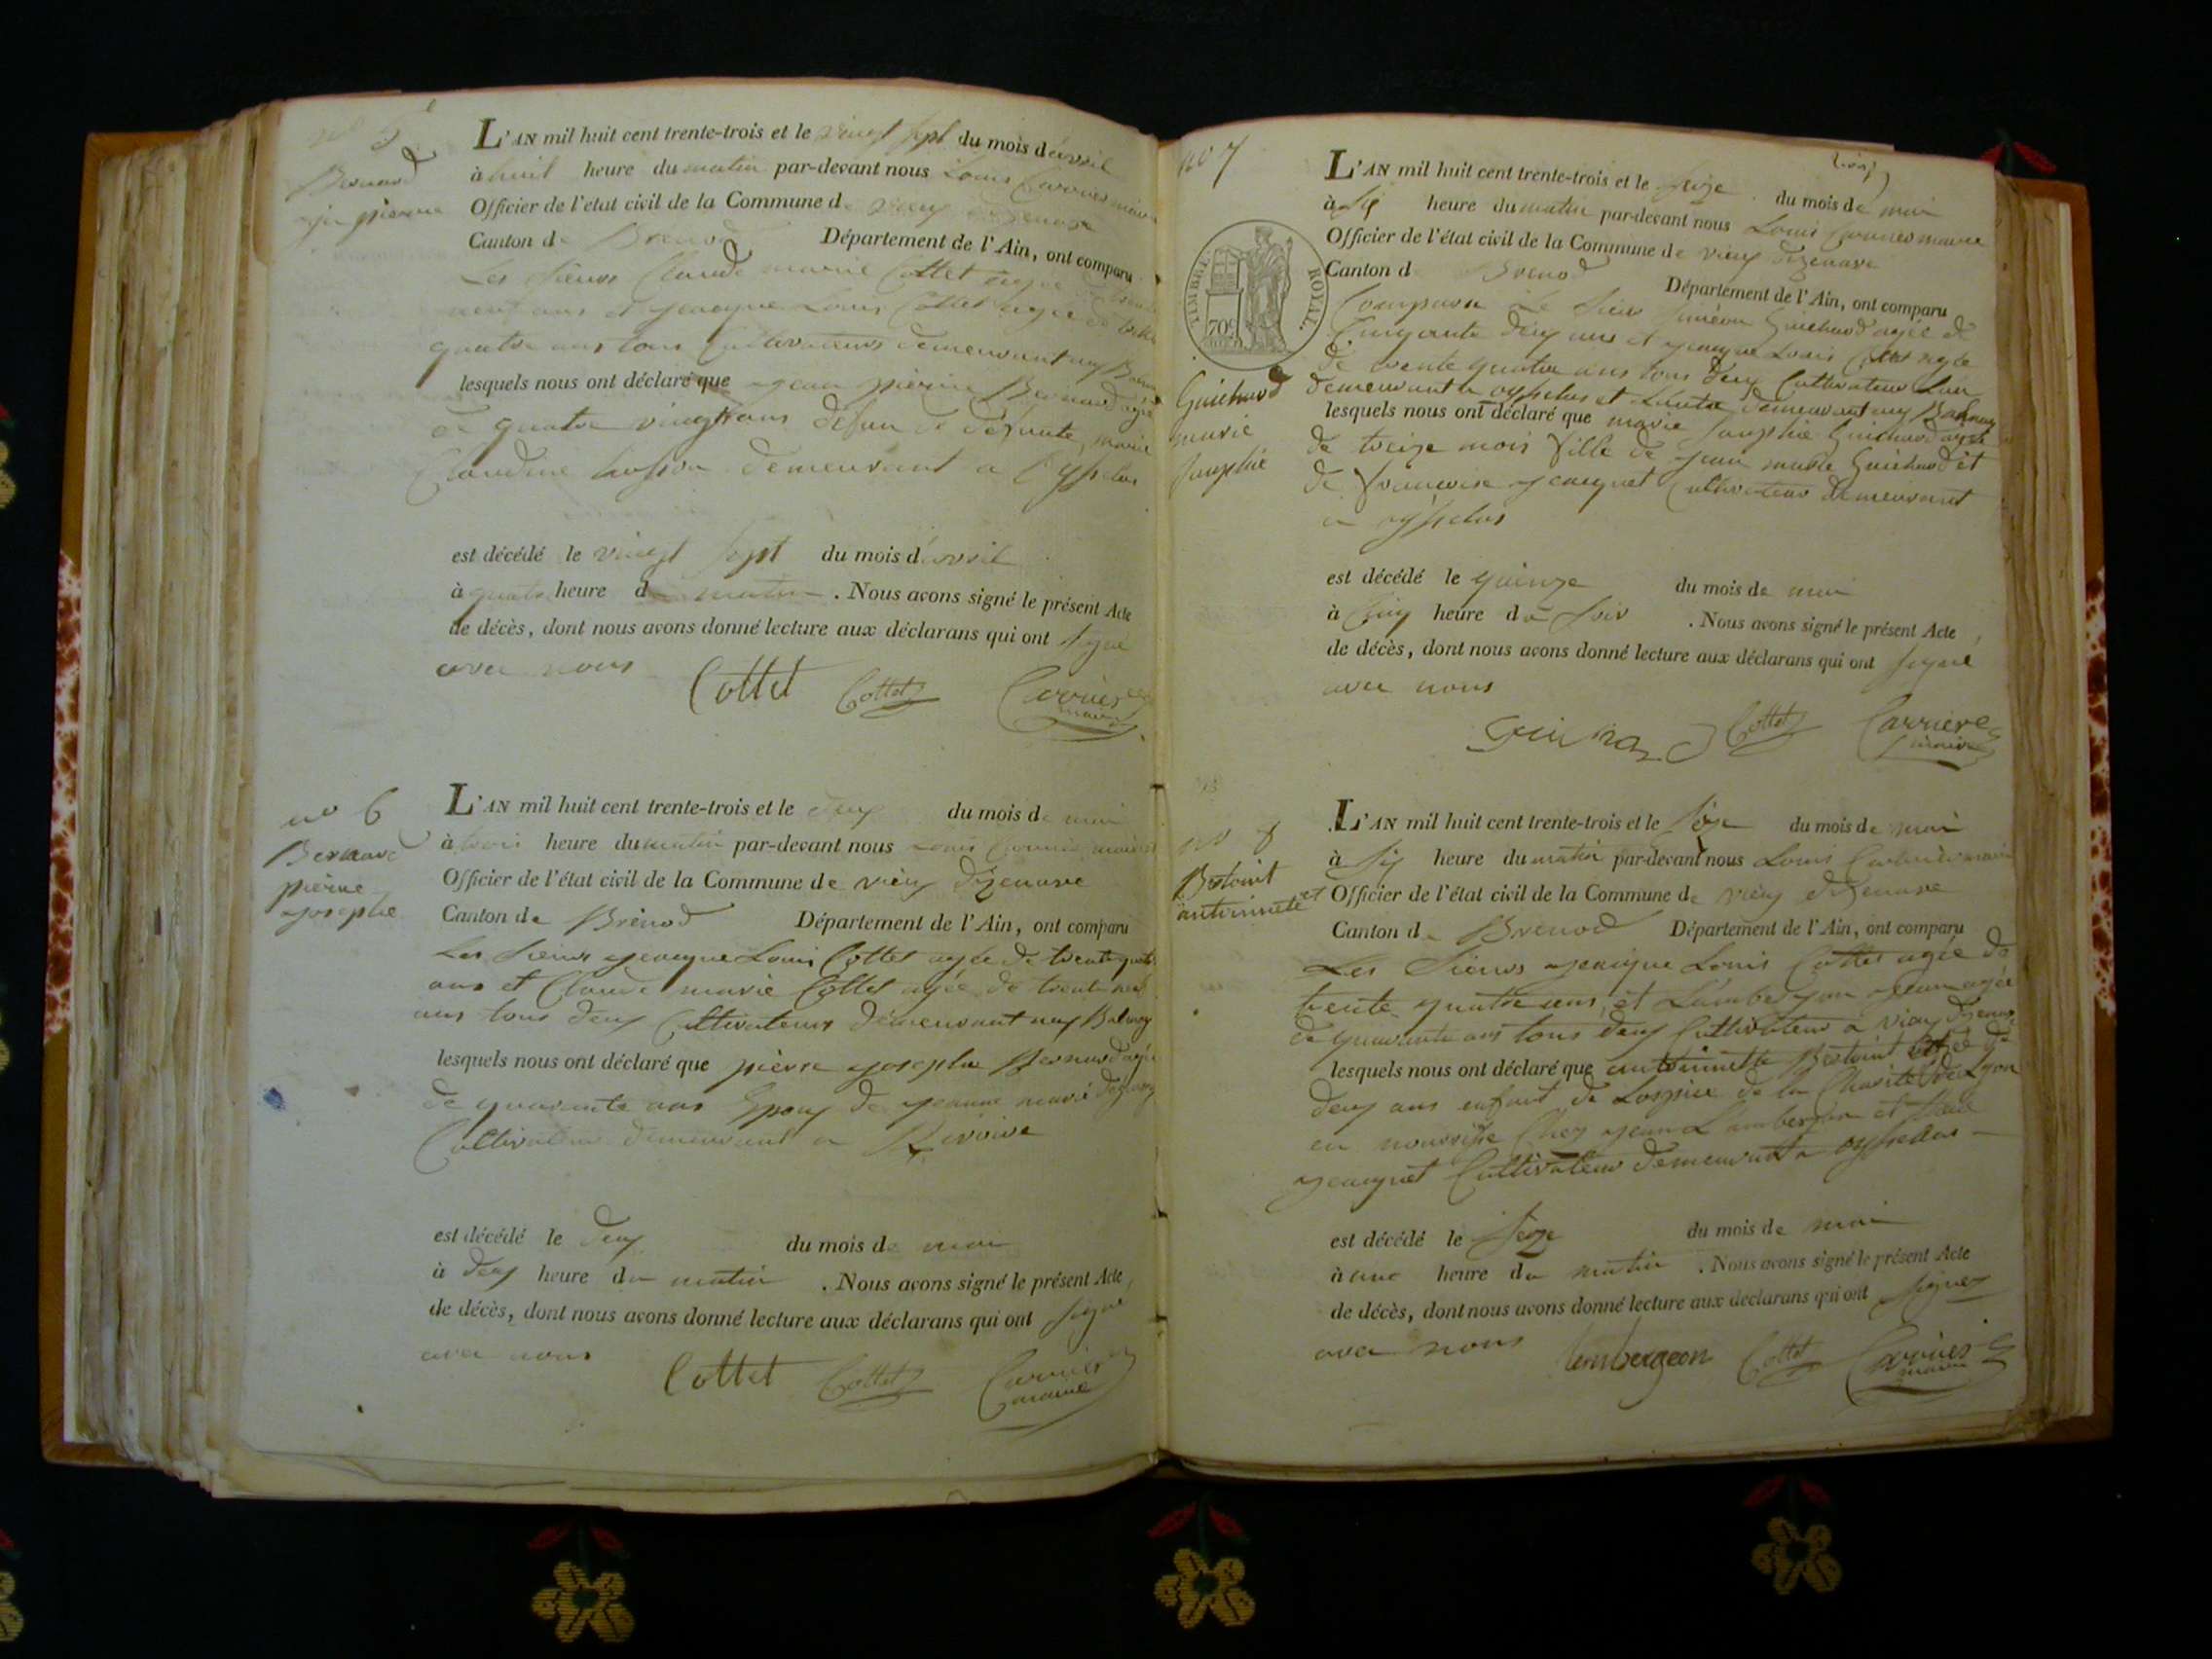 no 5
Bernard
jn pierre
L'AN mil huit cent trente-trois et le vingt sept du mois d'avril
à huit heure du matin par-devant nous Louis Carrier maire
Officier de l'etat civil de la Commune de vieu
Canton de Brenod Département de l'Ain, ont comparu
Les Sieurs Claude marie Cottet agée de trente
neuf ans et jeacque Louis Cottet agée de trente
quatre ans tous Cultivateurs demeurant
lesquels nous ont déclaré que jean pierre Bernard agée
de quatre vingt ans defun de defunte marie
Claudine demeurant a
est décédé le vingt sept du mois d'avril
à quatre heure du matin . Nous avons signé le présent Acte
de décès, dont nous avons donné lecture aux déclarans qui ont signé
avec nous
Cottet Cottet Carrier maire
no 6
Bernard
pierre
josephe
L'AN mil huit cent trente-trois et le deux du mois de mai
à trois heure du matin par-devant nous Louis Carrier maire
Officier de l'état civil de la Commune de vieu dizenave
Canton de Brénod Département de l'Ain, ont comparu
Les Sieurs jeacque Louis Cottet agée de trente quatre
ans et Claude marie Cottet agée de trente neuf
ans tous deux Cultivateurs demeurant aux Balmay
lesquels nous ont déclaré que pierre josephe Bernard agée
de quarante ans Epoux de jeanne marie
Cultivateur demeurant a Rivoire
est décédé le deux du mois de mai
à deux heure du matin . Nous avons signé le présent Acte,
de décès, dont nous avons donné lecture aux déclarans qui ont signé
avec nous
Cottet Cottet Carrier maire
no 7
TIMBRE ROYAL.
70c
Guichard
marie
Jauphie
L'AN mil huit cent trente-trois et le seize du mois de mai
à six heure du matin par-devant nous Louis Carrier maire
Officier de l'état civil de la Commune de vieu dizenave
Canton d Brenod Département de l'Ain, ont comparu
Comparu Le Sieur Guichard agée de
Cinquante deux ans et jeacque Louis Cottet agée
de trente quatre ans tous deux Cultivateur Lun
demeurant a et Lautre demeurant aux Balmay
lesquels nous ont déclaré que marie Jauphie Guichard agée
de treize mois fille de jean marie Guichard et
de francoise jeacquet Cultivateur demeurant
a
est décédé le quinze du mois de mai
à Cinq heure du Soir . Nous avons signé le présent Acte,
de décès, dont nous avons donné lecture aux déclarans qui ont signé
avec nous
Guichard Cottet Carrière maire
no 8
Bertoint
antoinnette
L'AN mil huit cent trente-trois et le seize du mois de mai
à six heure du matin par-devant nous Louis Carrier maire
Officier de l'état civil de la Commune de vieu dizenave
Canton de Brenod Département de l'Ain, ont comparu
Les Sieurs jeacque Louis Cottet agée de
trente quatre ans, et Lambergon jean agée
de quarante ans tous deux Cultivateur a vieu dizenave
lesquels nous ont déclaré que antoinnette Bertoint agée de
deux ans enfant de Lospice de la Charité de Lyon
en nourisse Chez jean Lambergon et
jeacquet Cultivateur demeurant a
est décédé le seize du mois de mai
à une heure du matin . Nous avons signé le présent Acte
de décès, dont nous avons donné lecture aux déclarans qui ont signer
avec nous
lambergeon Cottet Carrier maire